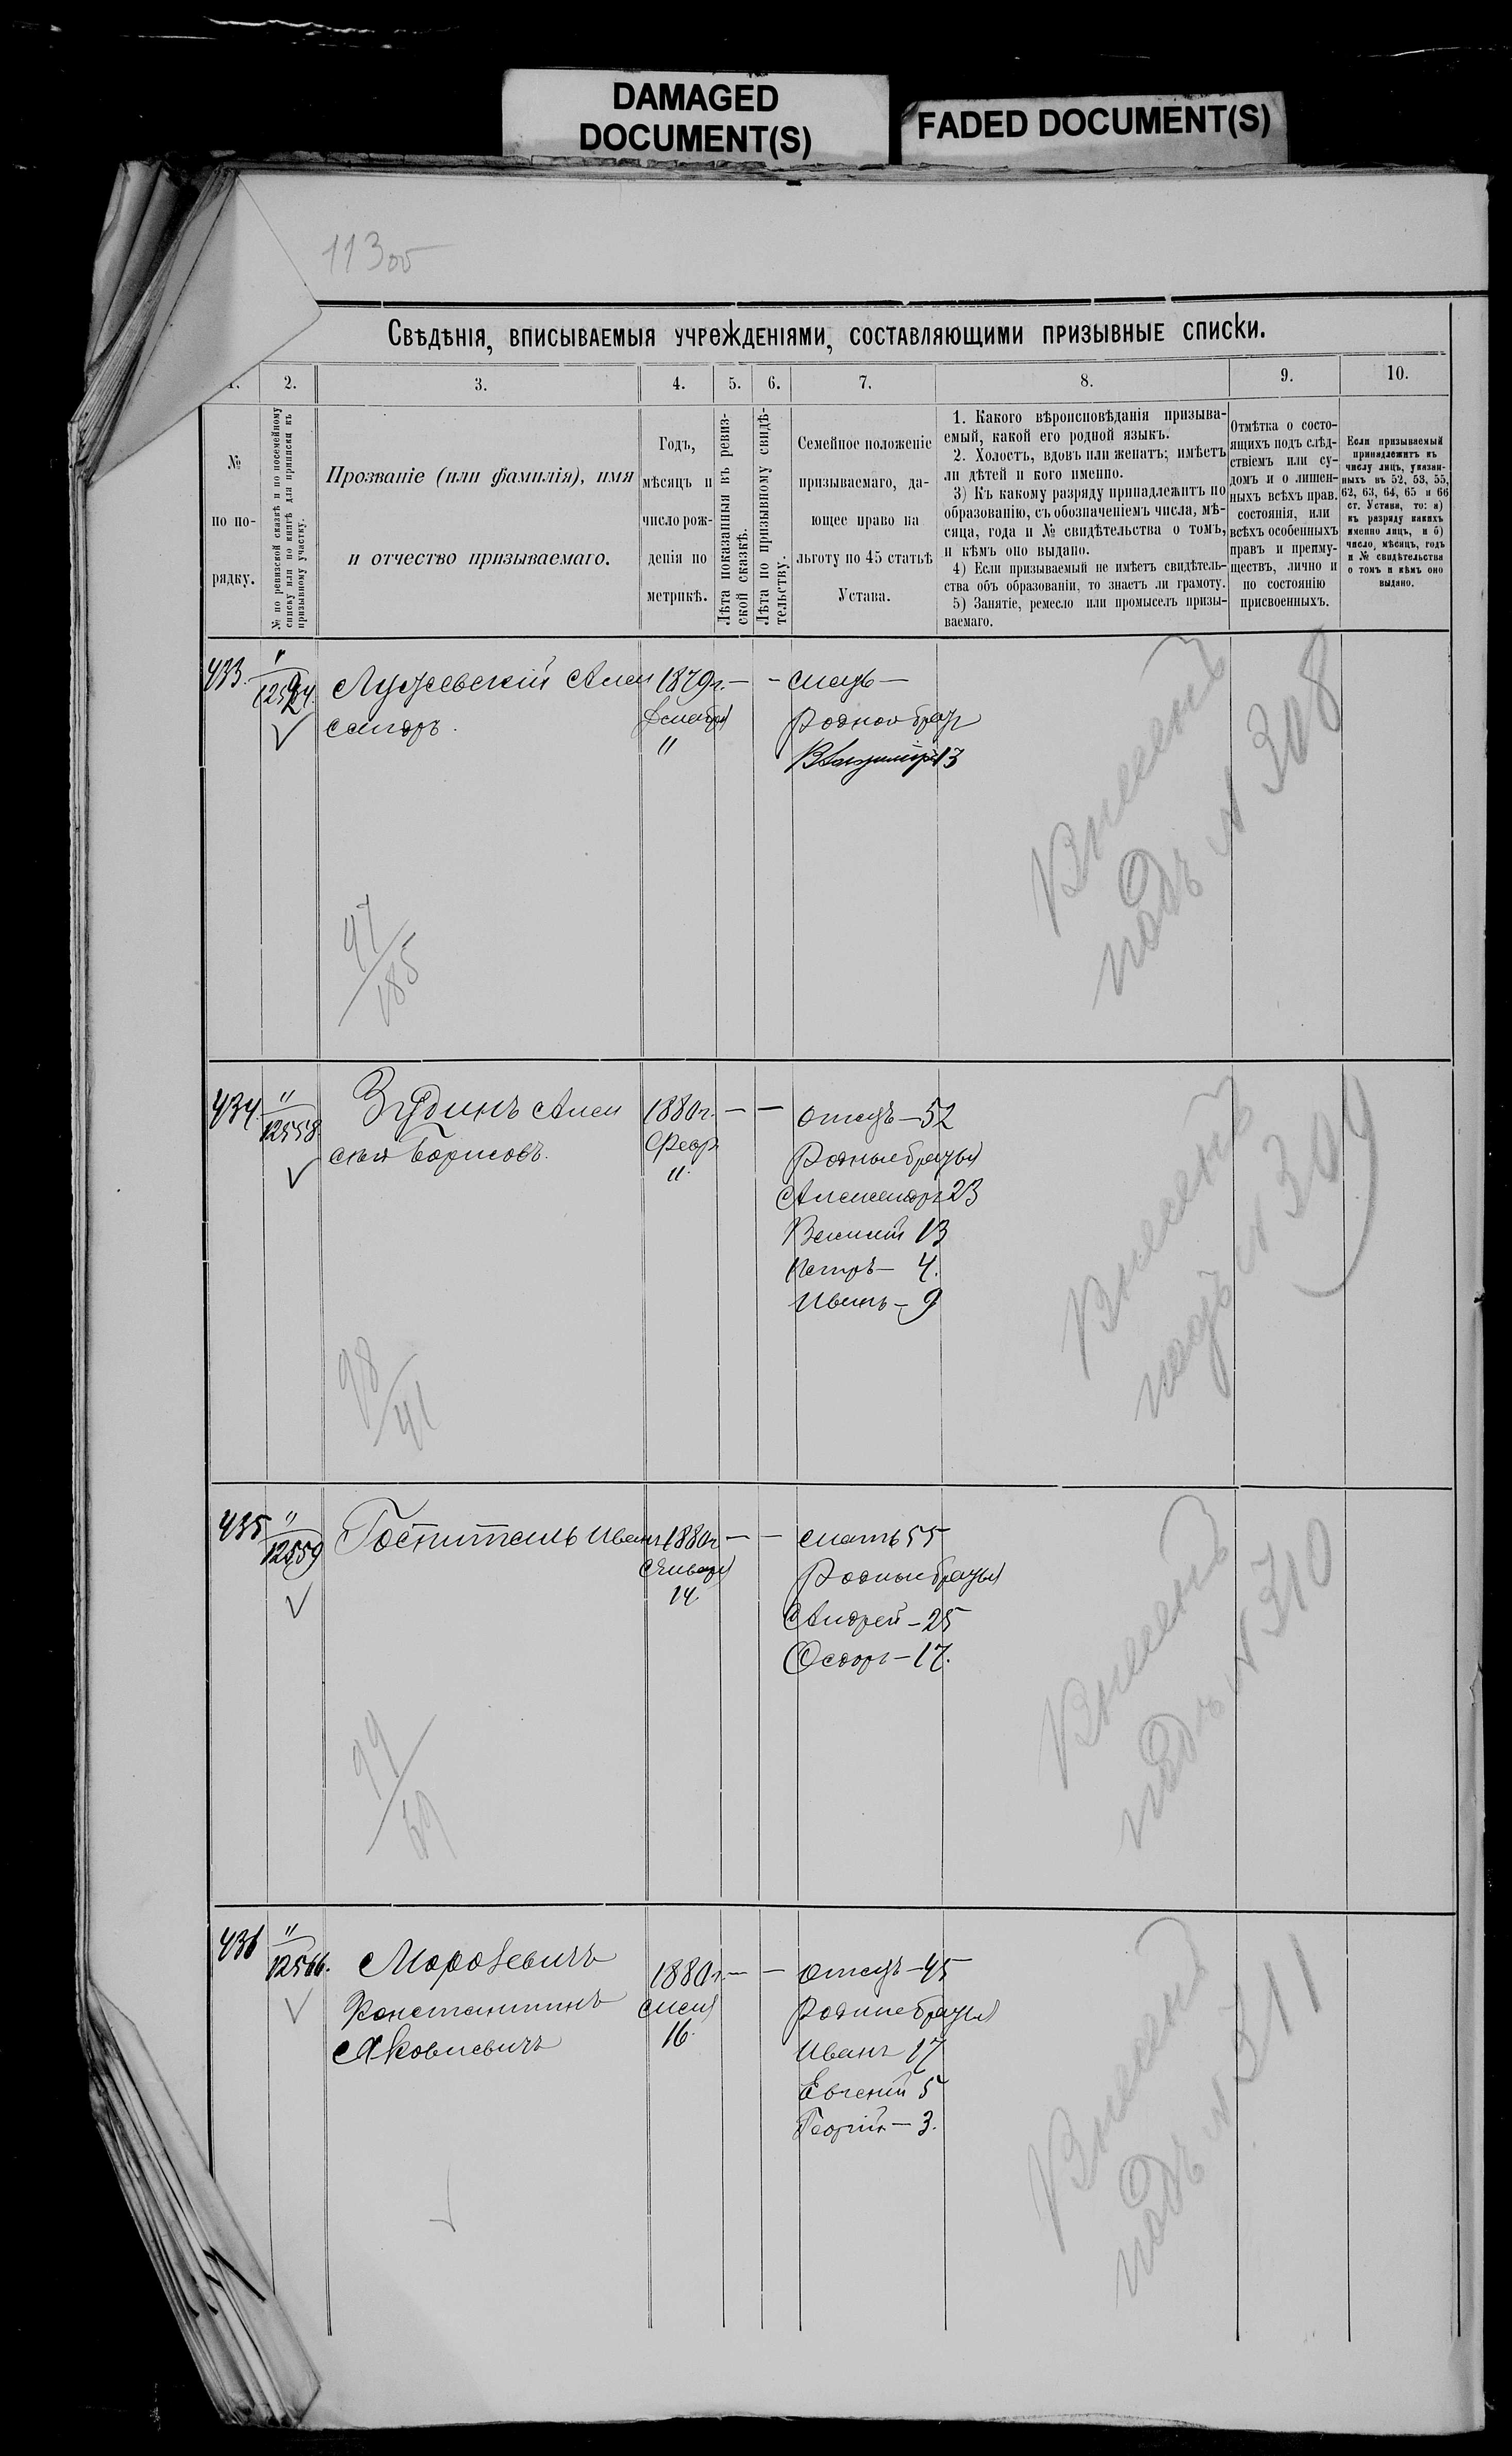 DAMAGED
DOCUMENT(S)
FADED DOCUMENT(S)
Свѣдѣнія, вписываемыя учрежденіями, составляющими призывные списки.
2.
3.
4.
5.
6.
7.
8.
9.
10.
№
по по-
рядку.
№ по ревизской сказкѣ и по посемейному
списку или по книгѣ для приписки къ
призывному участку.
Прозваніе (или фамилія), имя
и отчество призываемаго.
Годъ,
мѣсяцъ и
число рож-
денія по
метрикѣ.
Лѣта показанныя въ ревиз-
ской сказкѣ.
Лѣта по призывному свидѣ-
тельству.
Семейное положеніе
призываемаго, да-
ющее право на
льготу по 45 статьѣ
Устава.
1. Какого вѣроисповѣданія призыва-
емый, какой его родной языкъ.
2. Холостъ, вдовъ или женатъ; имѣетъ
ли дѣтей и кого именно.
3) Къ какому разряду принадлежитъ по
образованію, съ обозначеніемъ числа, мѣ-
сяца, года и № свидѣтельства о томъ,
и кѣмъ оно выдано.
4) Если призываемый не имѣетъ свидѣтель-
ства объ образованіи, то знаетъ ли грамоту.
5) Занятіе, ремесло или промыселъ призы-
ваемаго.
Отмѣтка о состо-
ящихъ подъ слѣд-
ствіемъ или су-
домъ и о лишен-
ныхъ всѣхъ прав.
состоянія, или
всѣхъ особенныхъ
правъ и преиму-
ществъ, лично и
по состоянію
присвоенныхъ.
Если призываемый
принадлежитъ къ
числу лицъ, указан-
ныхъ въ 52, 53, 55,
62, 63, 64, 65 и 66
ст. Устава, то: а)
къ разряду какихъ
именно лицъ, и б)
число, мѣсяцъ, годъ
и № свидѣтельства
о томъ и кѣмъ оно
выдано.
433.
1879г. —
Родной братъ
Владиміръ 13
Внесенъ
подъ N 308
97/185
434.
12558.
Зудинъ Алек
сѣй Борисовъ.
1880г. — —
Февр.
отецъ — 52
Родные братья
Александръ 23
Василій 13
Петръ — 4.
Иванъ — 9
Внесенъ
подъ N 309
98/41
435
12559
Госпиталь Иванъ
1880г — —
Января
14
мать 55
Родные братья
Андрей — 25
Ѳедоръ — 17.
Внесенъ
подъ N 310
436
12566.
Морозевичъ
Константинъ
Яковлевичъ
1880г. — —
Мая
16.
отецъ — 45
Родные братья
Иванъ 17
Евгеній 5
Георгій — 3.
Внесенъ
подъ N 311